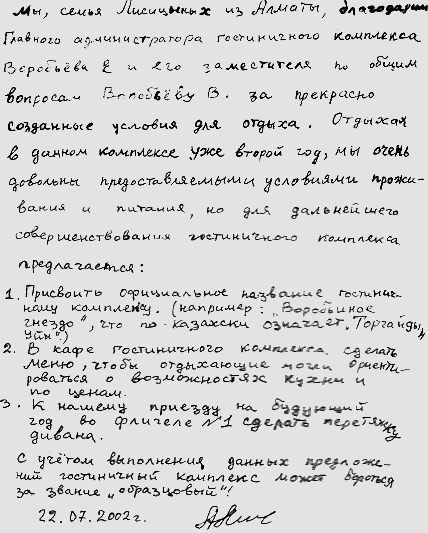 Мы, семья Лисицыных из Алматы, благодарим
Главного администратора гостиничного комплекса
Воробьёва Е и его заместителя по общим
вопросам Воробьёву В. за прекрасно
созданные условия для отдыха. Отдыхая
в данном комплексе уже второй год, мы очень
довольны предоставляемыми условиями прожи-
вания и питания, но для дальнейшего
совершенствования гостиничного комплекса
предлагается:
1. Присвоить официальное название гостинич-
ному комплексу. (например: „Воробьиное
гнездо", что по-казахски означает „Торгайдың
Уйи".)
2. В кафе гостиничного комплекса сделать
меню, чтобы отдыхающие могли ориенти-
роваться о возможностях кухни и
по ценам.
3. К нашему приезду на будующий
год во флигеле №1 сделать перетяжку
дивана.
С учётом выполнения данных предложе-
ний гостиничный комплекс может бороться
за звание „образцовый"!
22.07.2002г.